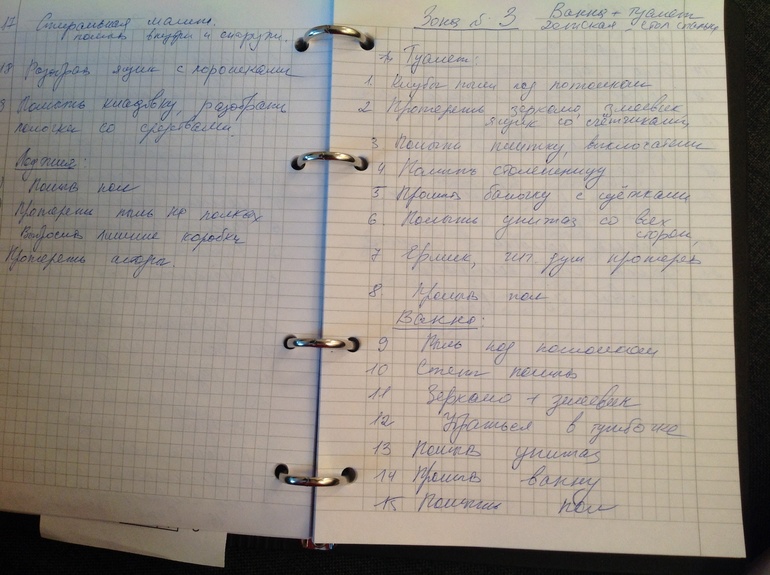 17 Стиральная машина.
помыть внутри и снаружи.
18 Разобрать ящик с порошками
Помыть кладовку, разобрать
полочки со средствами.
Лоджия:
Помыть пол
Протереть пыль на полках
Выбросить лишние коробки
Протереть
Зона № 3 Ванна + туалет
Детская стол
Туалет:
1. Клубы пыли под потолком
2 Протереть зеркало, змеевик
ящик со счётчиками,
3 Помыть плитку, выключатели
4 Помыть столешницу
5. Промыть баночку с щётками
6 Помыть унитаз со всех
сторон,
7 Ершик, гиг. душ протереть
8. Промыть пол
Ванна:
9 Пыль под потолком
10 Стены помыть
11 Зеркало + змеевик
12 в тумбочке
13 Помыть унитаз
14 Промыть ванну
15 Помыть пол